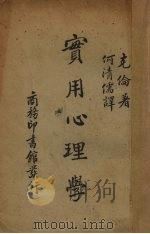 克倫著
何清儒譯
實用心理學
商務印書館發行
mtoou.info